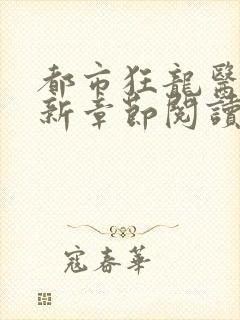 都市狂龍醫
新章節閱讀
寇春華